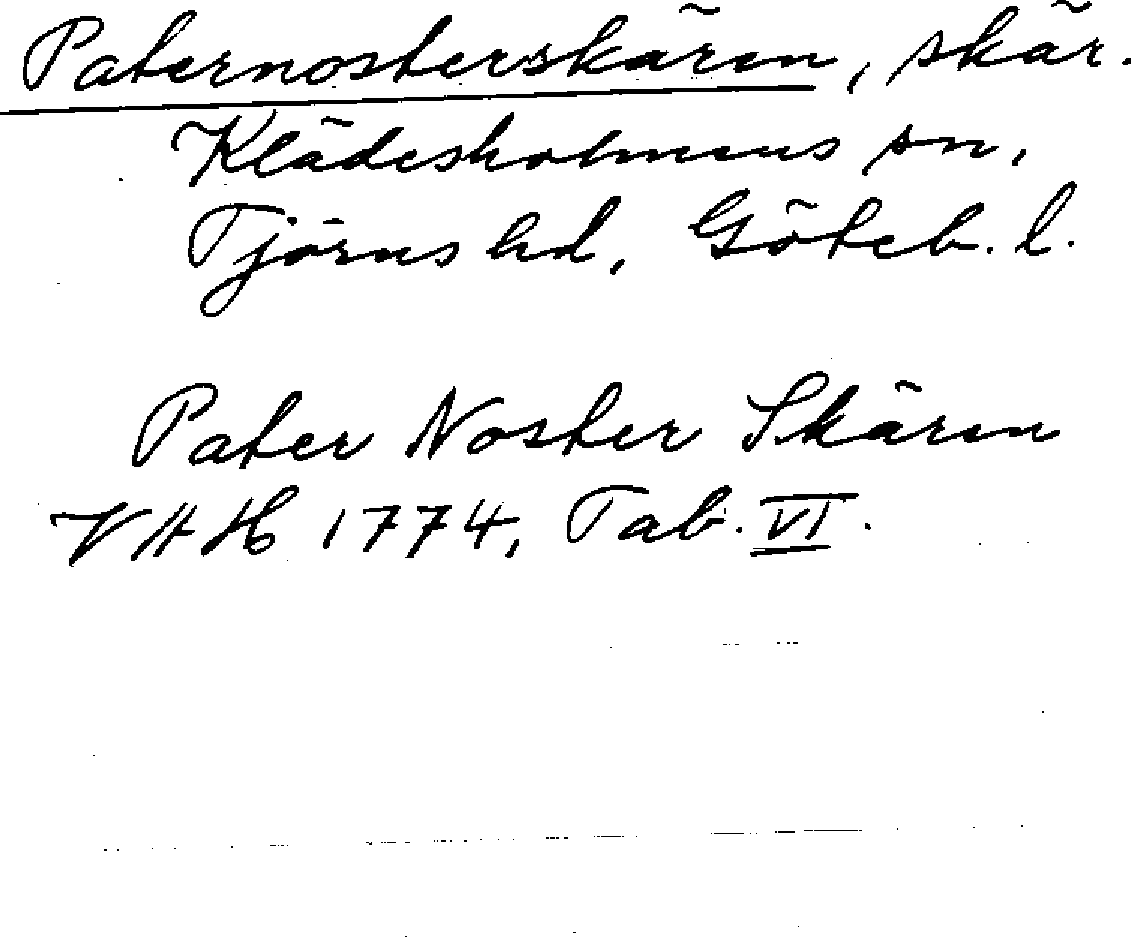 Paternosterskären, skär.
Klädesholmens sn,
Tjörns hd, Göteb. l.
Pater Noster Skären
VAH 1774, Tab. VI.